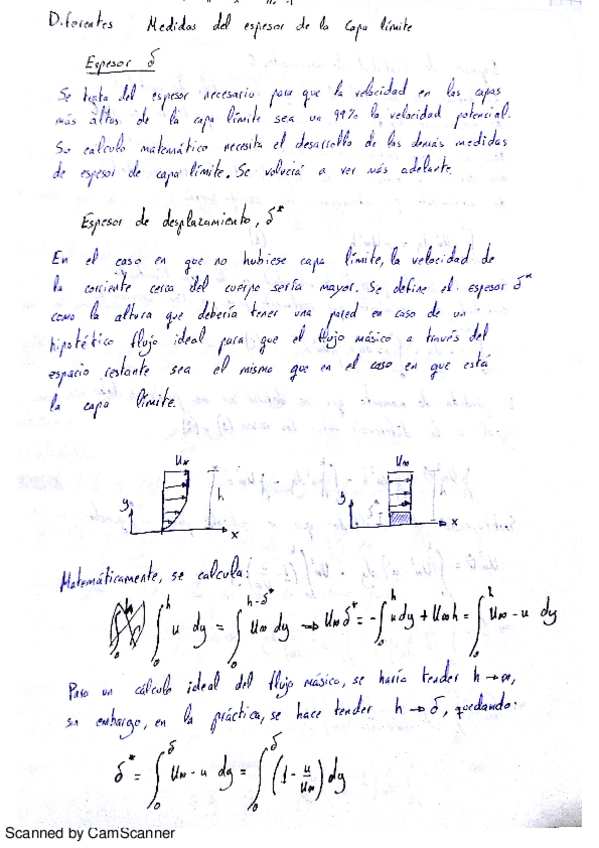 Diferentes Medidas del espesor de la Capa límite
Espesor δ
Se trata del espesor necesario para que la velocidad en las capas
más altas de la capa límite sea un 99% la velocidad potencial.
Su calculo matemático necesita el desarrollo de las demás medidas
de espesor de capa límite. Se volverá a ver más adelante.
Espesor de desplazamiento, δ*
En el caso en que no hubiese capa límite, la velocidad de
la corriente cerca del cuerpo sería mayor. Se define el espesor δ*
como la altura que debería tener una pared en caso de un
hipotético flujo ideal para que el flujo másico a través del
espacio restante sea el mismo que en el caso en que está
la capa límite.
U∞ U∞
y h y
x x
Matemáticamente, se calcula:
∫₀^h u dy = ∫₀^(h-δ*) U∞ dy → U∞ δ* = -∫₀^h u dy + U∞ h = ∫₀^h U∞ - u dy
Para un cálculo ideal del flujo másico, se haría tender h → ∞,
sin embargo, en la práctica, se hace tender h → δ, quedando:
δ* = ∫₀^δ U∞ - u dy = ∫₀^δ (1 - u/U∞) dy
Scanned by CamScanner